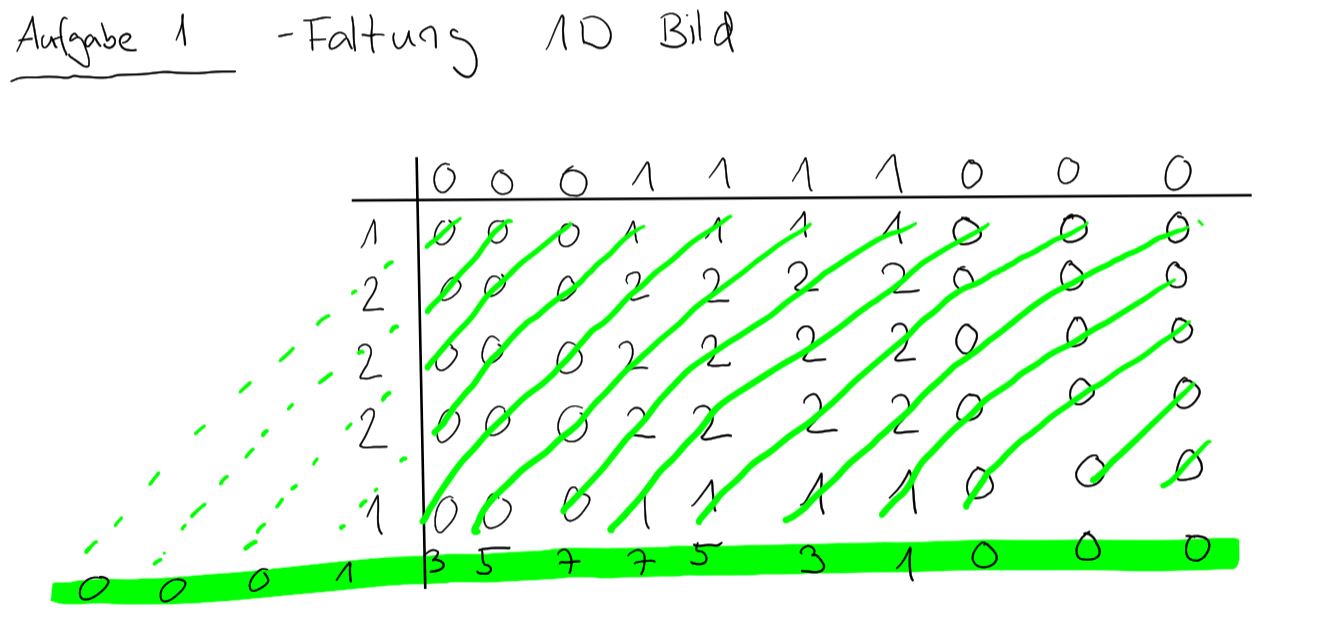 Aufgabe 1 - Faltung 1D Bild
0 0 0 1 1 1 1 0 0 0
1 0 0 0 1 1 1 1 0 0 0
2 0 0 0 2 2 2 2 0 0 0
2 0 0 0 2 2 2 2 0 0 0
2 0 0 0 2 2 2 2 0 0 0
1 0 0 0 1 1 1 1 0 0 0
0 0 0 1 3 5 7 7 5 3 1 0 0 0